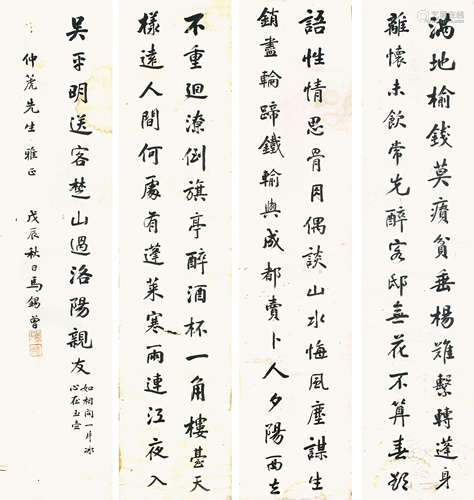 滿地榆錢莫療貧垂楊難繫轉蓬身
離懷未飲常先醉客邸無花不算春欲
語性情思骨肉偶談山水悔風塵謀生
銷盡輪蹄鐵輸與成都賣卜人夕陽西去
不重迴潦倒旗亭醉酒杯一角樓臺天
樣遠人間何處有蓬萊寒雨連江夜入
吳平明送客楚山過洛陽親友
如相問一片冰
心在玉壺
仲虎先生雅正
戊辰秋日馬錫曾